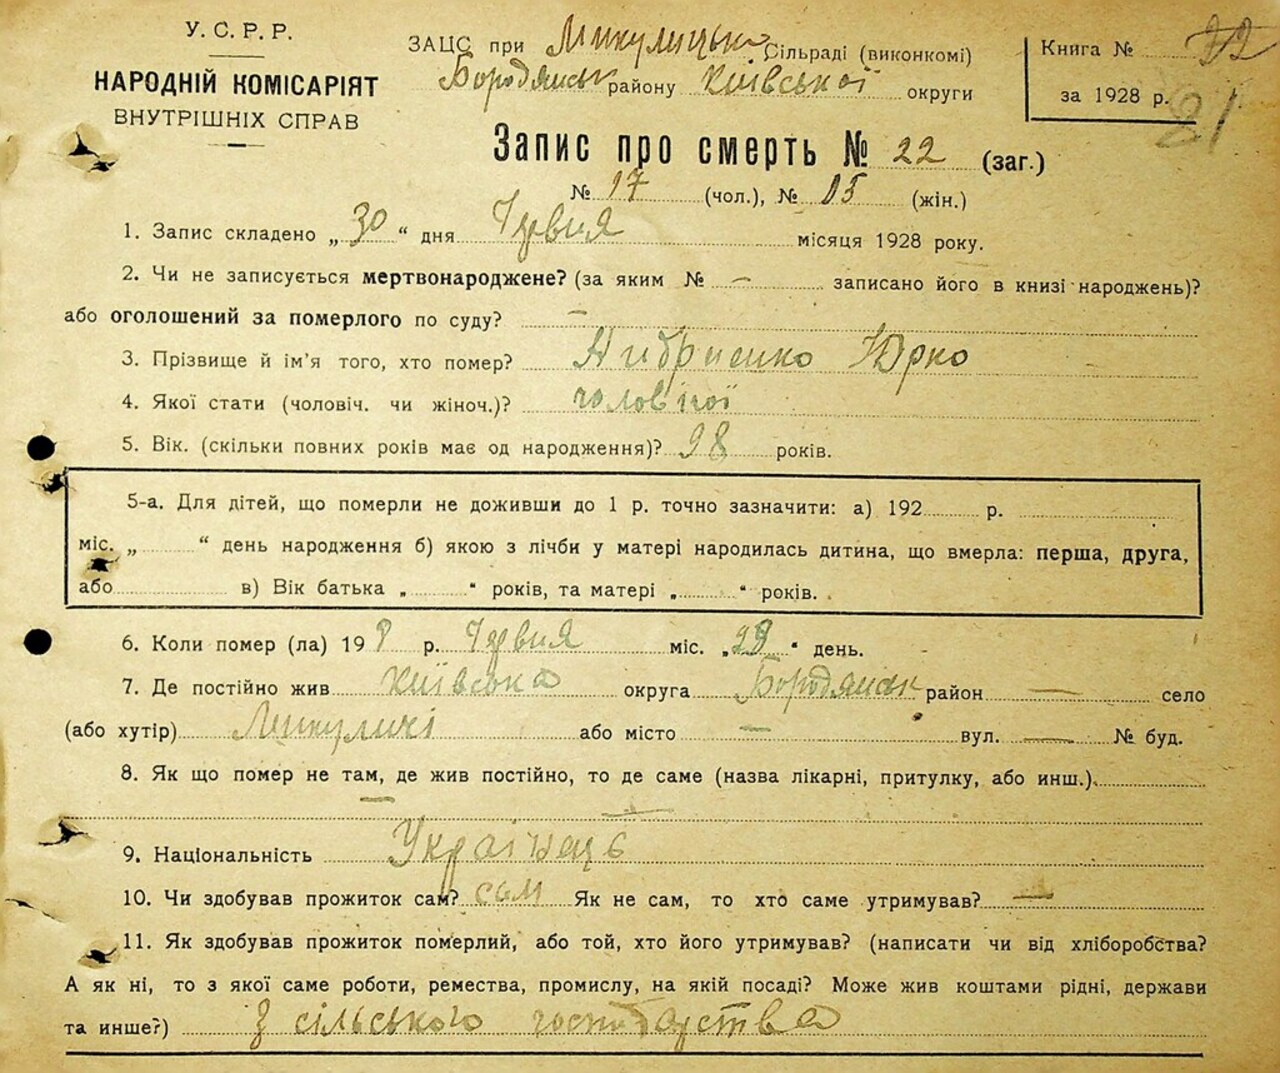 У. С. Р. Р.
НАРОДНІЙ КОМІСАРІЯТ
ВНУТРІШНІХ СПРАВ
ЗАЦС при Микулицькій Сільраді (виконкомі)
Бородянськ району Київської округи
Книга №
за 1928 р.
Запис про смерть № 22 (заг.)
№ 17 (чол.), № 15 (жін.)
1. Запис складено „ 30 “ дня Червня місяця 1928 року.
2. Чи не записується мертвонароджене? (за яким № — записано його в книзі народжень)?
або оголошений за померлого по суду? —
3. Прізвище й ім'я того, хто помер? Андрієнко Юрко
4. Якої стати (чоловіч. чи жіноч.)? чоловічої
5. Вік. (скільки повних років має од народження)? 98 років.
5-а. Для дітей, що померли не доживши до 1 р. точно зазначити: а) 192 р.
міс. „ “ день народження б) якою з лічби у матері народилась дитина, що вмерла: перша, друга,
або в) Вік батька „ “ років, та матері „ “ років.
6. Коли помер (ла) 19 8 р. Червня міс. „ 29 “ день.
7. Де постійно жив Київська округа Бородянськ район — село
(або хутір) Микуличі або місто — вул. — № буд.
8. Як що помер не там, де жив постійно, то де саме (назва лікарні, притулку, або инш.)
— —
9. Національність Українець
10. Чи здобував прожиток сам? сам Як не сам, то хто саме утримував? —
11. Як здобував прожиток померлий, або той, хто його утримував? (написати чи від хліборобства?
А як ні, то з якої саме роботи, ремества, промислу, на якій посаді? Може жив коштами рідні, держави
та инше?) З сільського господарства